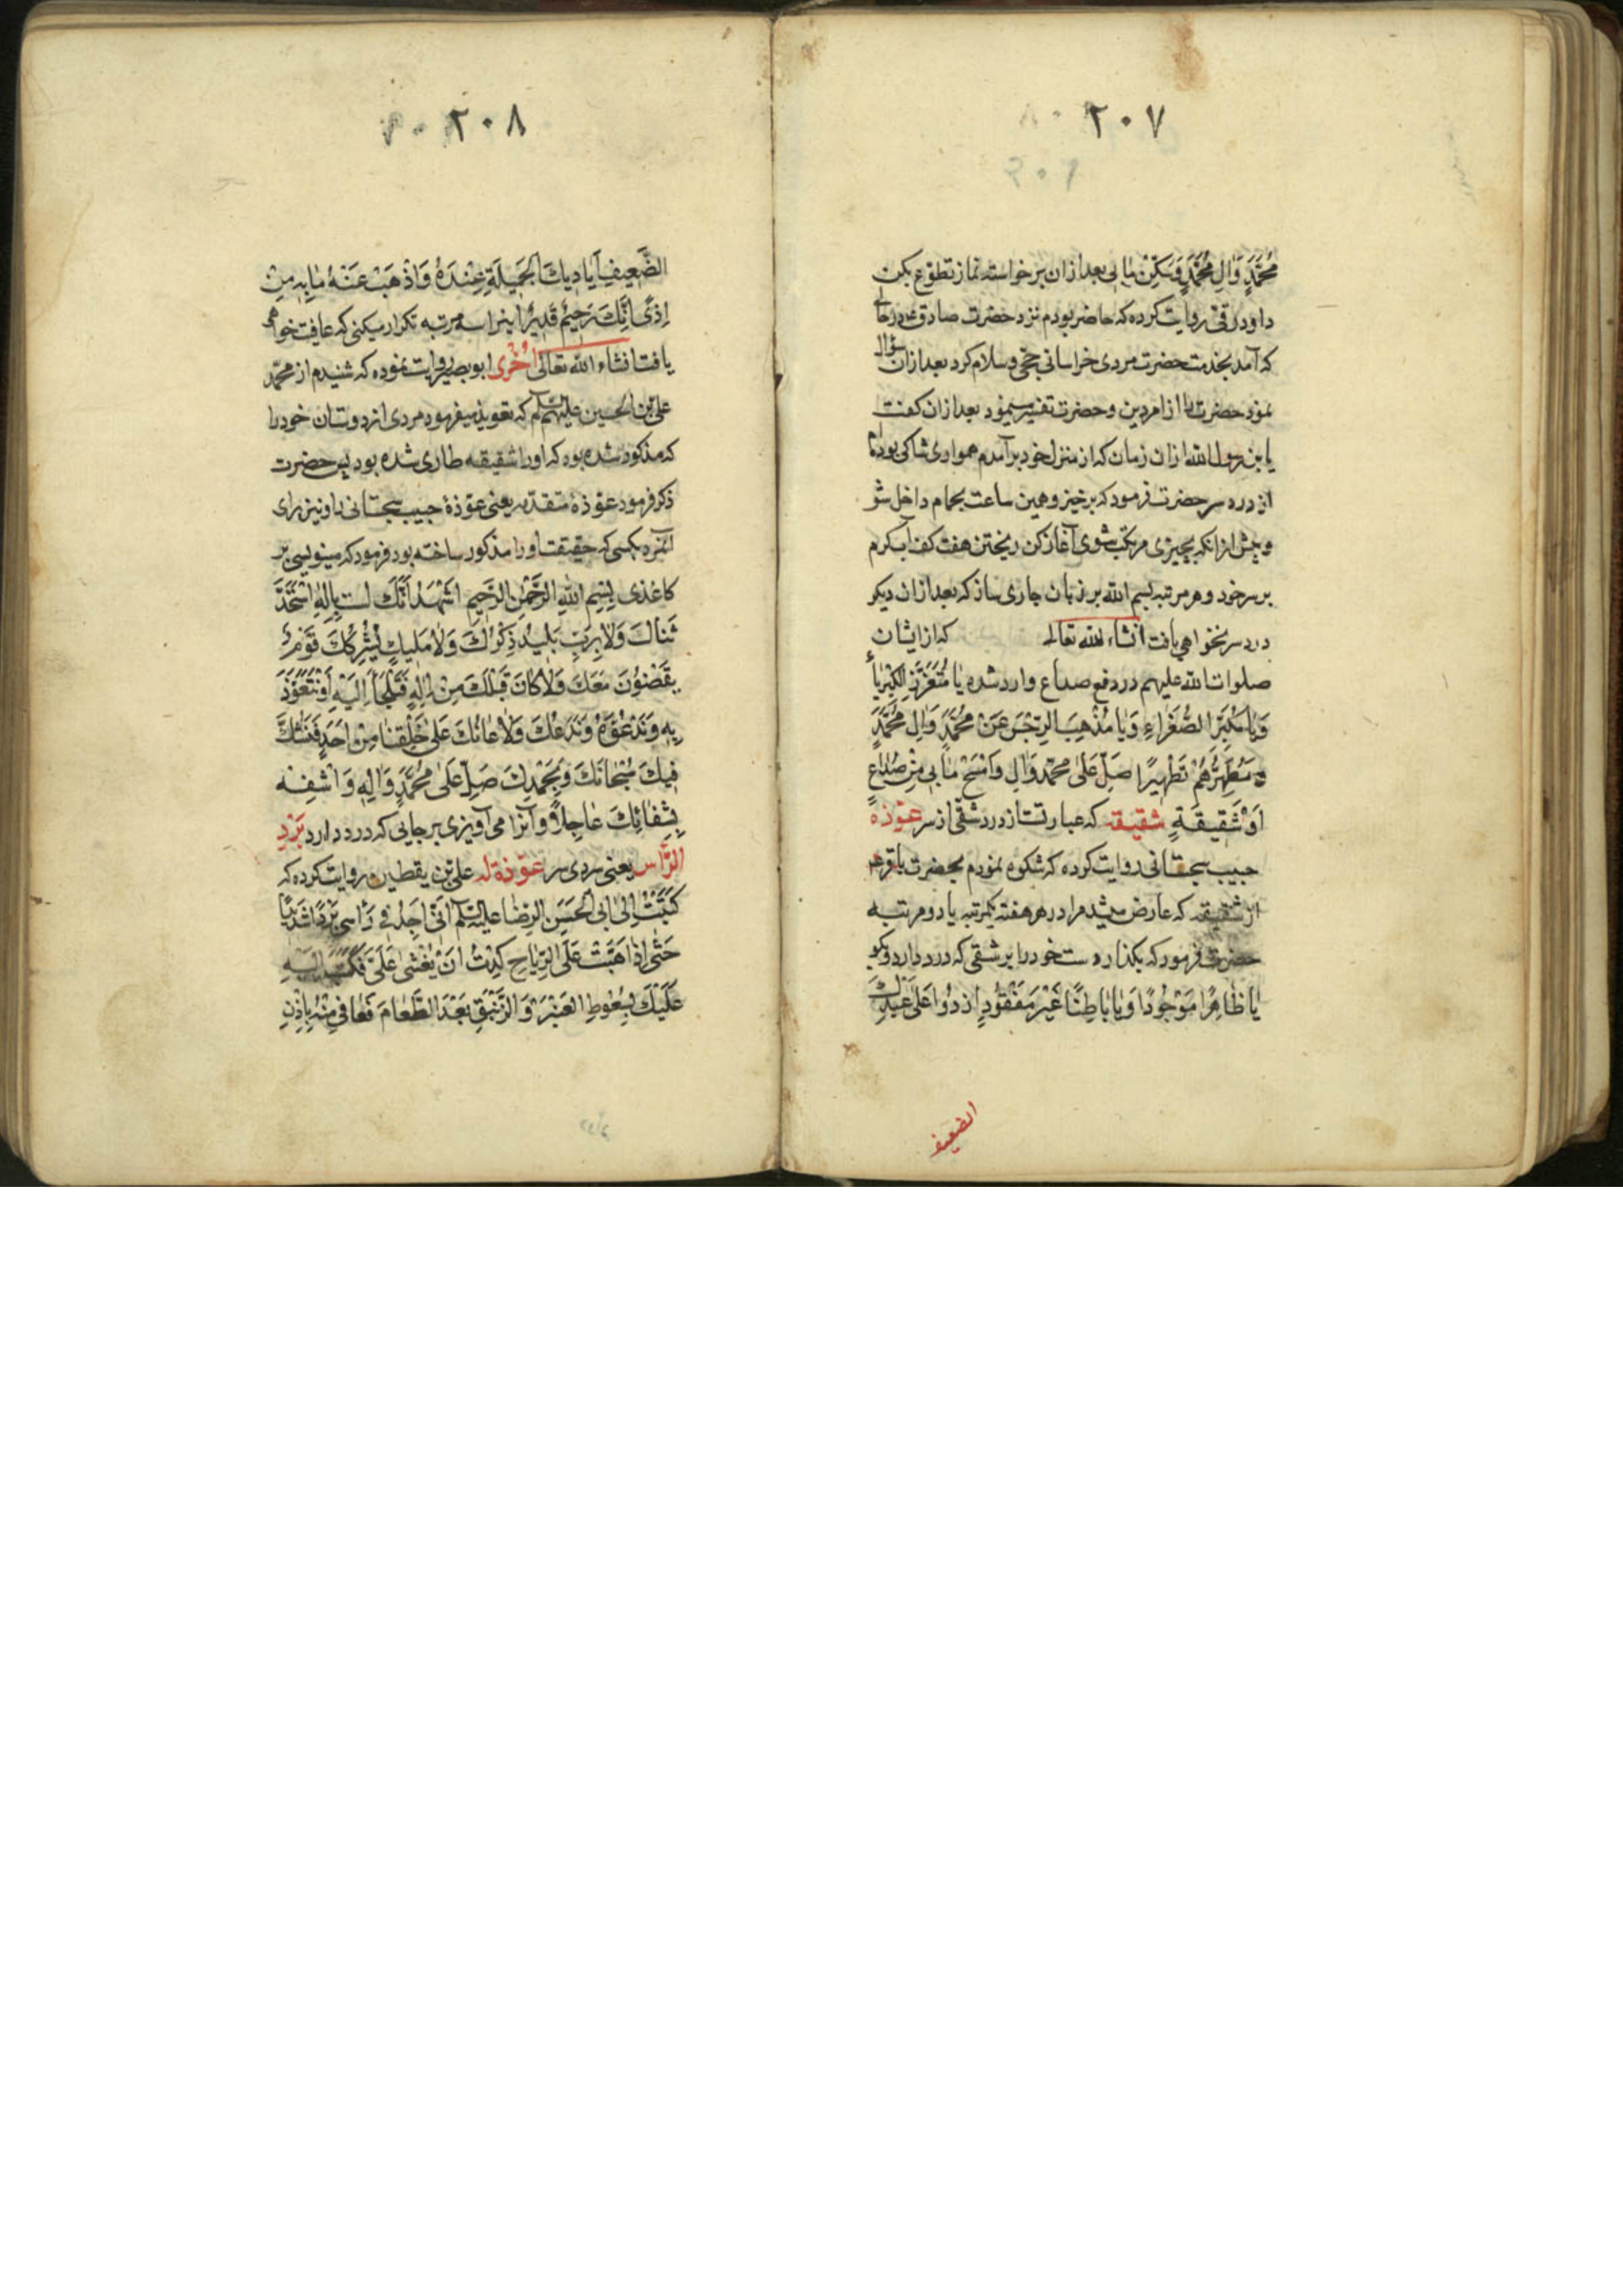 ٢٠٧
مُحَمَّدٍ وَّالِ مُحَمَّدٍ وَسَكِّنْ مٰا بی بعد ازان برخواسته نماز تطوّع بکن
داود رقی روایت کرده که حاضر بودم نزد حضرت صادق در حالی
که آمد بخدمت حضرت مردی خراسانی حجّی و سلام کرد بعد ازان سؤال
نمود حضرت را از امر دین و حضرت تفسیر مینمود بعد ازان کفت
یابن رسول الله ازان زمان که از منزل خود برآمدم همواری شاکی بوده‌ام
از درد سر حضرت فرمود که برخیز و همین ساعت بحمام داخل شو
و پیش ازانکه بچیزی مرتکب شوی آغاز کن ریختن هفت کف آب کرم
بر سر خود و هر مرتبه بسم الله بر زبان جاری ساز که بعد ازان دیکر
درد سر نخواهی یافت انشاء الله تعالی که از ایشان
صلوات الله علیهم در دفع صداع وارد شده یٰا مُتَعَزِّز الکِبْرِیٰاءِ
وَیٰا مُکَبِّرَ الصُّغَرٰاءِ وَیٰا مُذْهِبَ الرِّجْسِ عَنْ مُحَمَّدٍ وَّالِ مُحَمَّدٍ
وَ مُطَهِّرَهُمْ تَطْهِیرًا صَلِّ عَلیٰ محمّد وَالِ وَامْسَحْ مٰا بی مِنْ صُدٰاعٍ
اَوْ شَقیقَةٍ شقیقه که عبارتست از درد شقی از سر عوّذة
حبیب سجستانی روایت کرده که شکوه نمودم بحضرت باقر
از شقیقه که عارض میشد مرا در هر هفته یکمرتبه یا دو مرتبه
حضرت فرمود که بکذار دست خود را بر شقی که درد دارد و بکو
یٰا ظٰاهِرًا مَوْجُودًا وَیٰا بٰاطِنًا غَیْرَ مَفْقُودٍ اردُدْ اعَلیٰ عَبْدِكَ
الضعیف
٢٠٨
الضَّعِیفِ اَیادِیكَ الجَمِیلَةِ عِنْدَهُ وَاَذْهِبْ عَنْهُ مٰا بِهِ مِنْ
اِذًی اِنَّكَ رَحِیمٌ قَدِیرٌ اینرا سه مرتبه تکرار میکنی که عافیت خواهی
یافت انشاء الله تعالی اُخْری ابو بصیر روایت نموده که شنیدم از محمّد
علی بن الحسین علیهم السلم که تعویذ میفرمود مردی از دوستان خود را
که مذکور شده بود که او را شقیقه طاری شده بود پس حضرت
ذکر فرمود عوّذهٔ متقدّمه یعنی عوّذهٔ حبیب سجستانی را و نیز برای
بکسی که حقیقت او را مذکور ساخته بود فرمود که مینویسی بر
کاغذی بِسْمِ اللّٰهِ الرَّحْمٰنِ الرَّحِیمِ اشْهَدُ اَنَّكَ لست بِاِلٰهٍ اسْتَحْدَ
ثَنٰاكَ وَلٰا بِرَبٍّ یَبِیدُ ذِکْرُكَ وَلٰا مَلِیكٍ یَشْرِکُكَ قَوْمٌ
یَقْضُونَ مَعَكَ وَلٰا کٰانَ قَبْلَكَ مِنْ اِلٰهٍ فَنَلْجَأَ اِلَیْهِ اَوْ نَتَعَوَّذَ
بِهِ وَنَدْعُوَهُ وَنَدَعُكَ وَلٰا عٰانَكَ عَلیٰ خَلْقِنٰا مِنْ اَحَدٍ فَنَشُكَّ
فِیكَ سُبْحٰانَكَ وَبِحَمْدِكَ صَلِّ عَلیٰ مُحَمَّدٍ وَاٰلِهِ وَاشْفِهِ
بِشِفٰائِكَ عٰاجِلًا و آنرا می‌آویزی بر جایی که درد دارد بَرْدِ
الرَّأس یعنی سردی سر عوّذة له علی بن یقطین روایت کرده که
کَتَبْتُ اِلیٰ اَبی الْحَسَنِ الرِّضٰا علیه السلم اَنّی اَجِدُ فی رَأسی بَرْدًا شَدیدًا
حَتّیٰ اِذٰا هَبَّتْ عَلَیَّ الرِّیٰاحِ کِدْتُ اَنْ یُغْشیٰ عَلَیَّ فَکَتَبَ اِلَیَّ
عَلَیْكَ بِسُعُوطِ العَنْبَرِ وَالزَّنْبَقِ بَعْدَ الطَّعٰامِ تُعٰافی مِنْهُ بِاِذْنِ